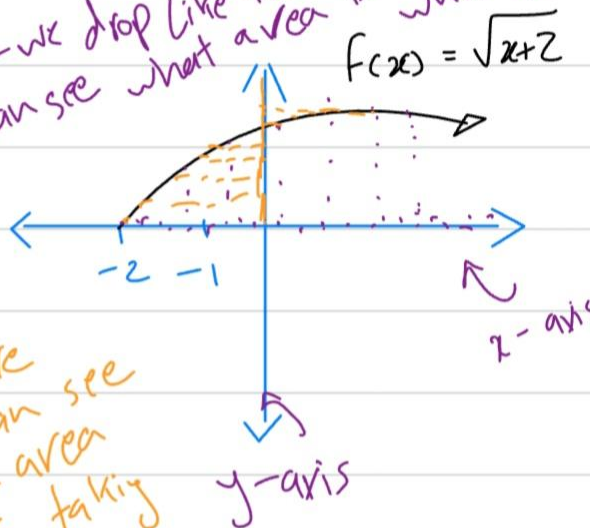 - we drop line
can see what area
f(x) = √x+2
-2 -1
x-axis
can see
area
taking
y-axis